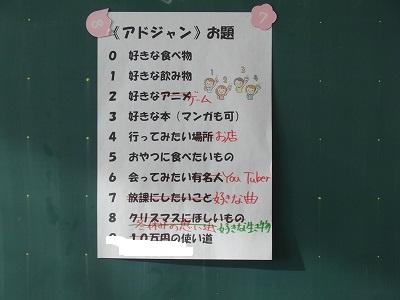 8
7
《アドジャン》お題
0 好きな食べ物
1 好きな飲み物
2 好きなアニメゲーム
3 好きな本（マンガも可）
4 行ってみたい場所お店
5 おやつに食べたいもの
6 会ってみたい有名人YouTuber
7 放課にしたいこと好きな曲
8 クリスマスにほしいもの
冬休みの思い出好きな生き物
9 10万円の使い道